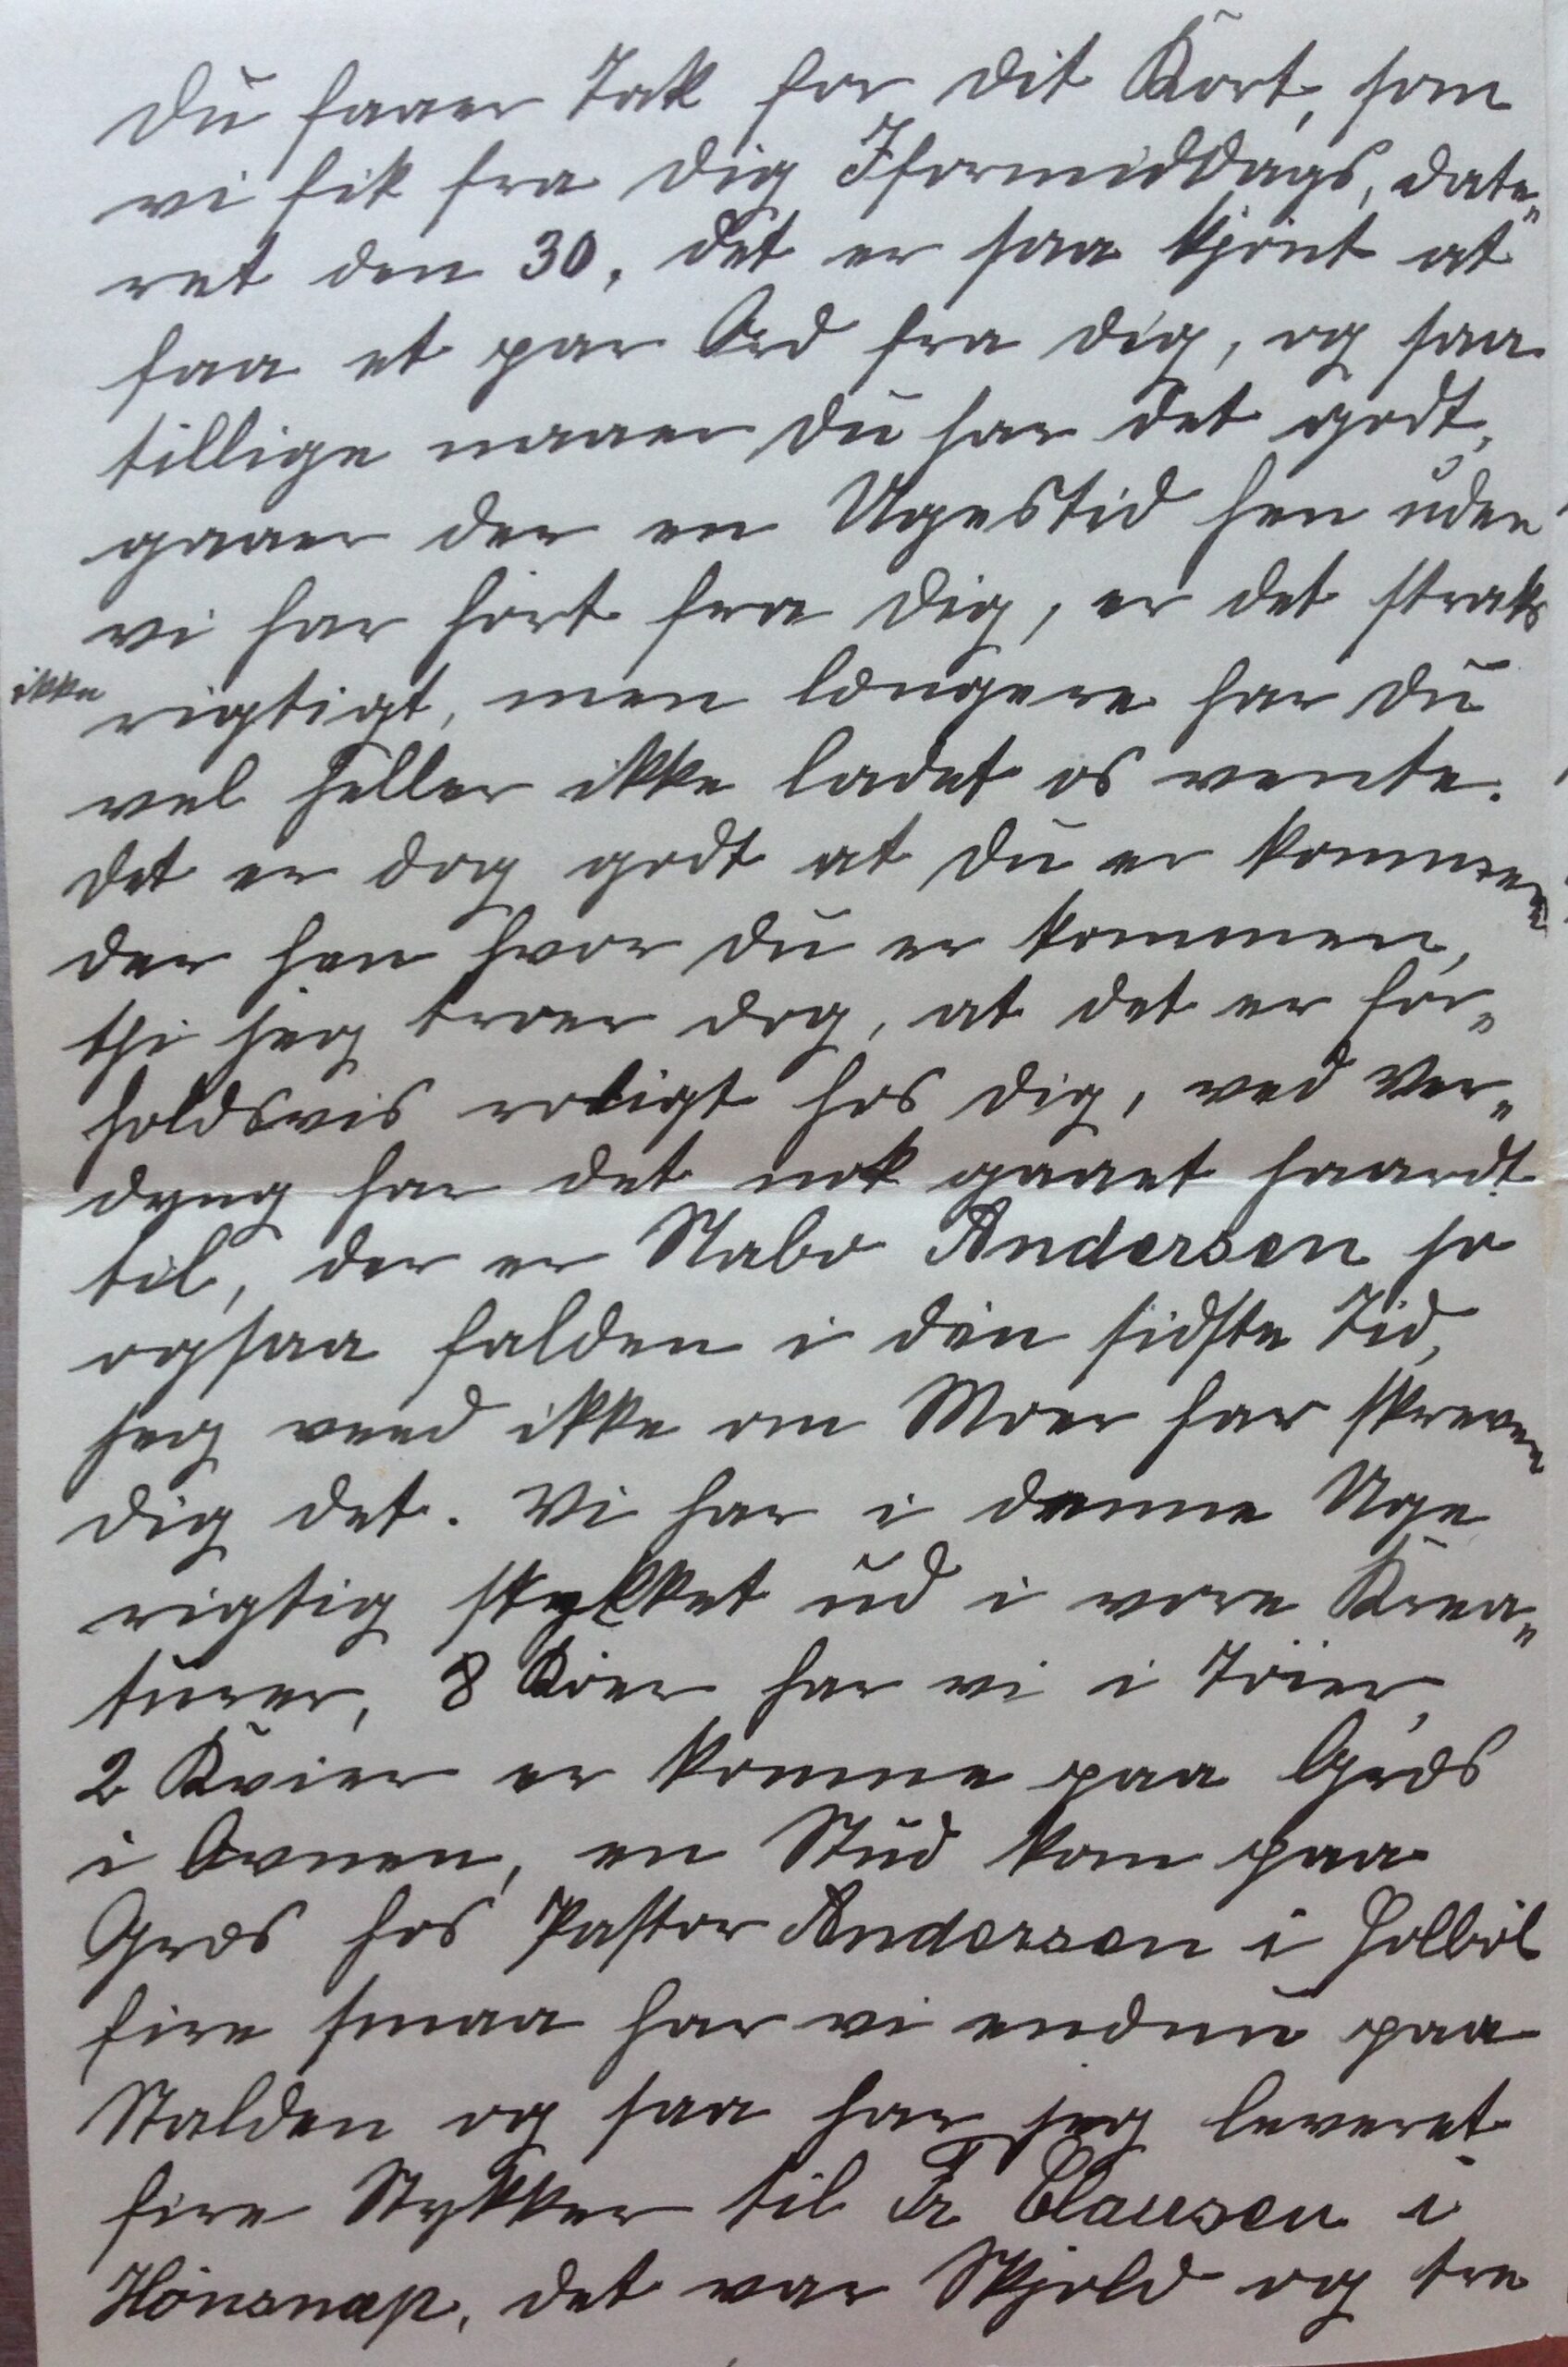 Du faaer Tak for dit Kort, som
vi fik fra dig Iformiddags, date„
ret den 30, det er saa kjönt at
faa et par Ord fra dig, og saa
tillige naaer du har det godt,
gaaer der en Ugestid hen uden
vi har hört fra dig, er det straks
ikke rigtigt, men længere har du
vel heller ikke ladet os vente.
Det er dog godt at du er kommen
der hen hvor du er kommen,
thi jeg troer dog, at det er for„
holdsvis roligt hos dig, ved Ver„
dyng har det nok gaaet haardt
til, der er Nabo Andersen jo
ogsaa falden i den sidste Tid,
jeg veed ikke om Moer har skreven
dig det. Vi har i denne Uge
rigtig stykket ud i vore Krea„
turer, 8 Köer har vi i Töier,
2 Kvier er komne paa Græs
i Avnen, en Stud kom paa
Græs hos Pastor Andersen i Holböl
fire smaa har vi endnu paa
Stalden og saa har jeg leveret
fire Stykker til Fr. Clausen i
Hönsnap, det var Skjold og tre